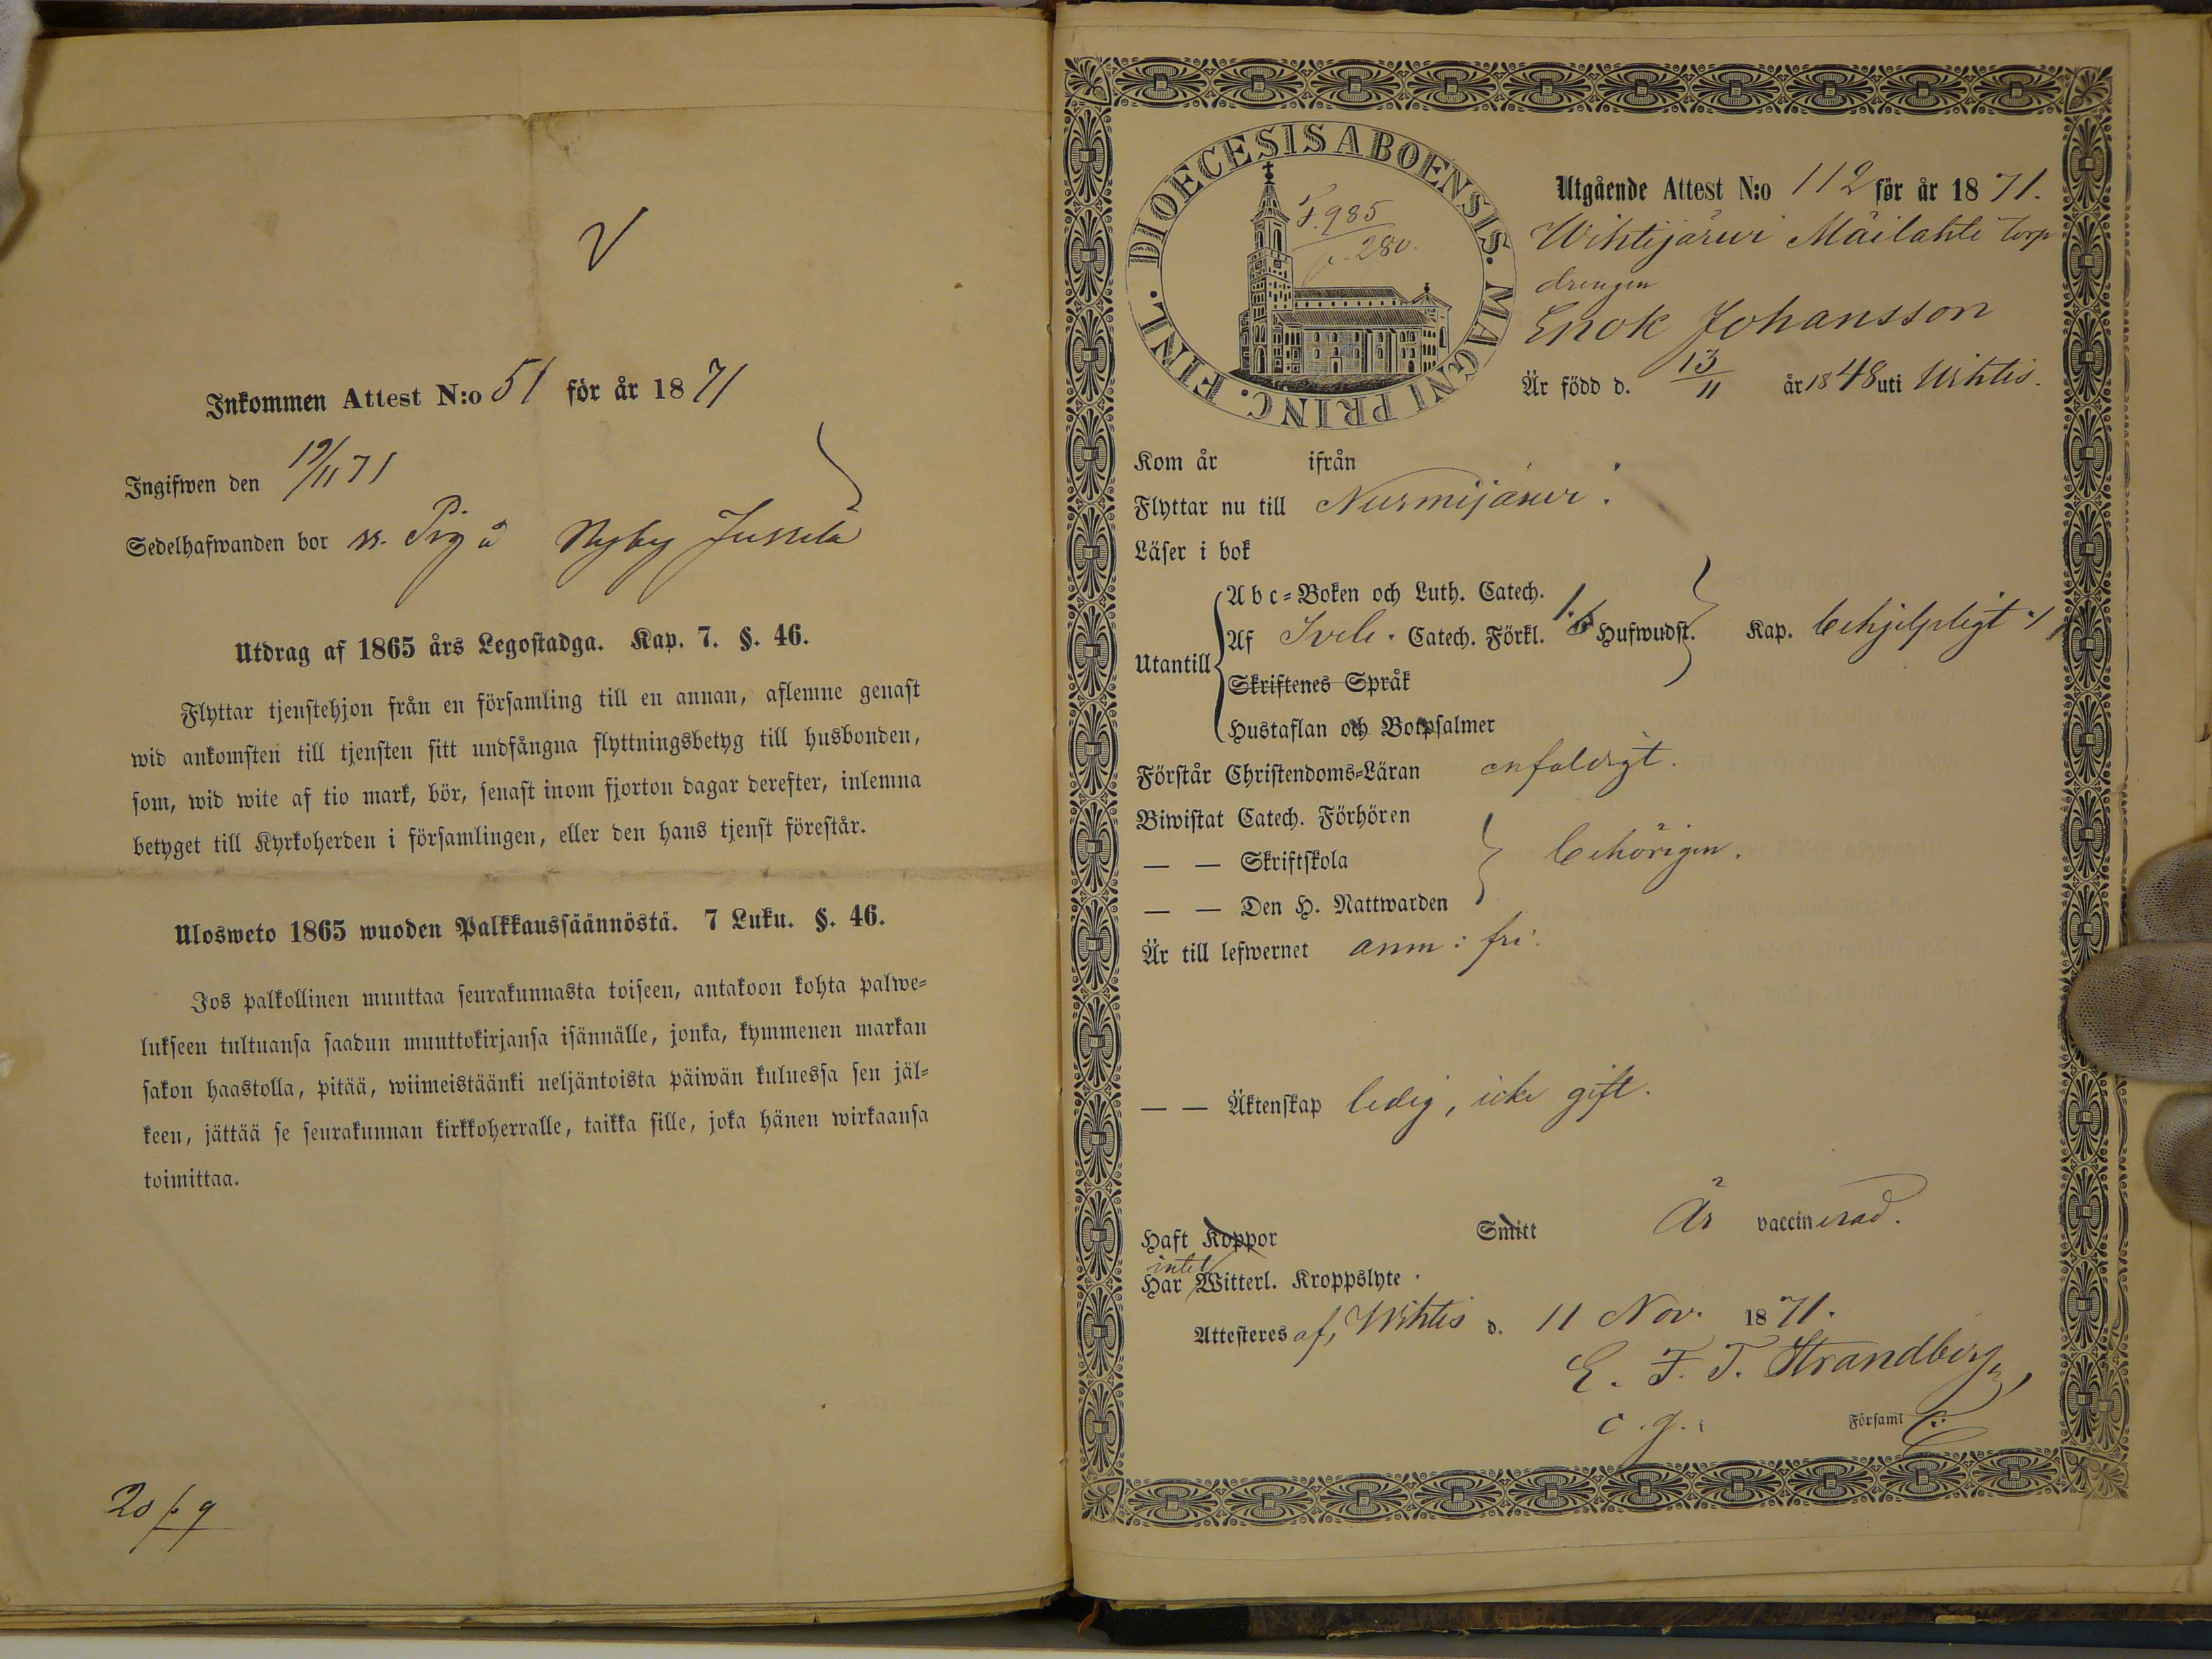 V
Inkommen Attest N:o 51 för år 1871
Ingifwen den 19/11 71
Sedelhafwanden bor ss. Pig å Nyby Jussila
Utdrag af 1865 års Legostadga. Kap. 7. §. 46.
Flyttar tjenstehjon från en församling till en annan, aflemne genast
wid ankomsten till tjensten sitt undfångna flyttningsbetyg till husbonden,
som, wid wite af tio mark, bör, senast inom fjorton dagar derefter, inlemna
betyget till Kyrkoherden i församlingen, eller den hans tjenst förestår.
Ulosweto 1865 wuoden Palkkaussäännöstä. 7 Luku. §. 46.
Jos palkollinen muuttaa seurakunnasta toiseen, antakoon kohta palwe-
lukseen tultuansa saadun muuttokirjansa isännälle, jonka, kymmenen markan
sakon haastolla, pitää, wiimeistäänki neljäntoista päiwän kuluessa sen jäl-
keen, jättää se seurakunnan kirkkoherralle, taikka sille, joka hänen wirkaansa
toimittaa.
20 p 9
FINL. DIOECESIS ABOENSIS. MAGNI PRINC.
F. 985
p. 280.
Utgående Attest N:o 112 för år 1871.
Wihtijärwi Mäilahti torp
drengen
Enok Johansson
Är född d. 13/11 år 1848 uti Wihtis.
Kom år ifrån
Flyttar nu till Nurmijärwi.
Läser i bok
Utantill
Abc-Boken och Luth. Catech.
Af Sveb. Catech. Förkl. Hufwudst. Kap. behjelpligt
Skriftenes Språk
Hustaflan och Botpsalmer
Förstår Christendoms-Läran enfaldigt.
Biwistat Catech. Förhören
— — Skriftskola behörigen.
— — Den H. Nattwarden
Är till lefwernet anm: fri.
— — Äktenskap ledig, icke gift.
Haft Koppor Smitt Är vaccinerad.
intet
Har Witterl. Kroppslyte.
Attesteres af, Wihtis d. 11 Nov. 1871.
E. F. T. Strandberg,
Församl